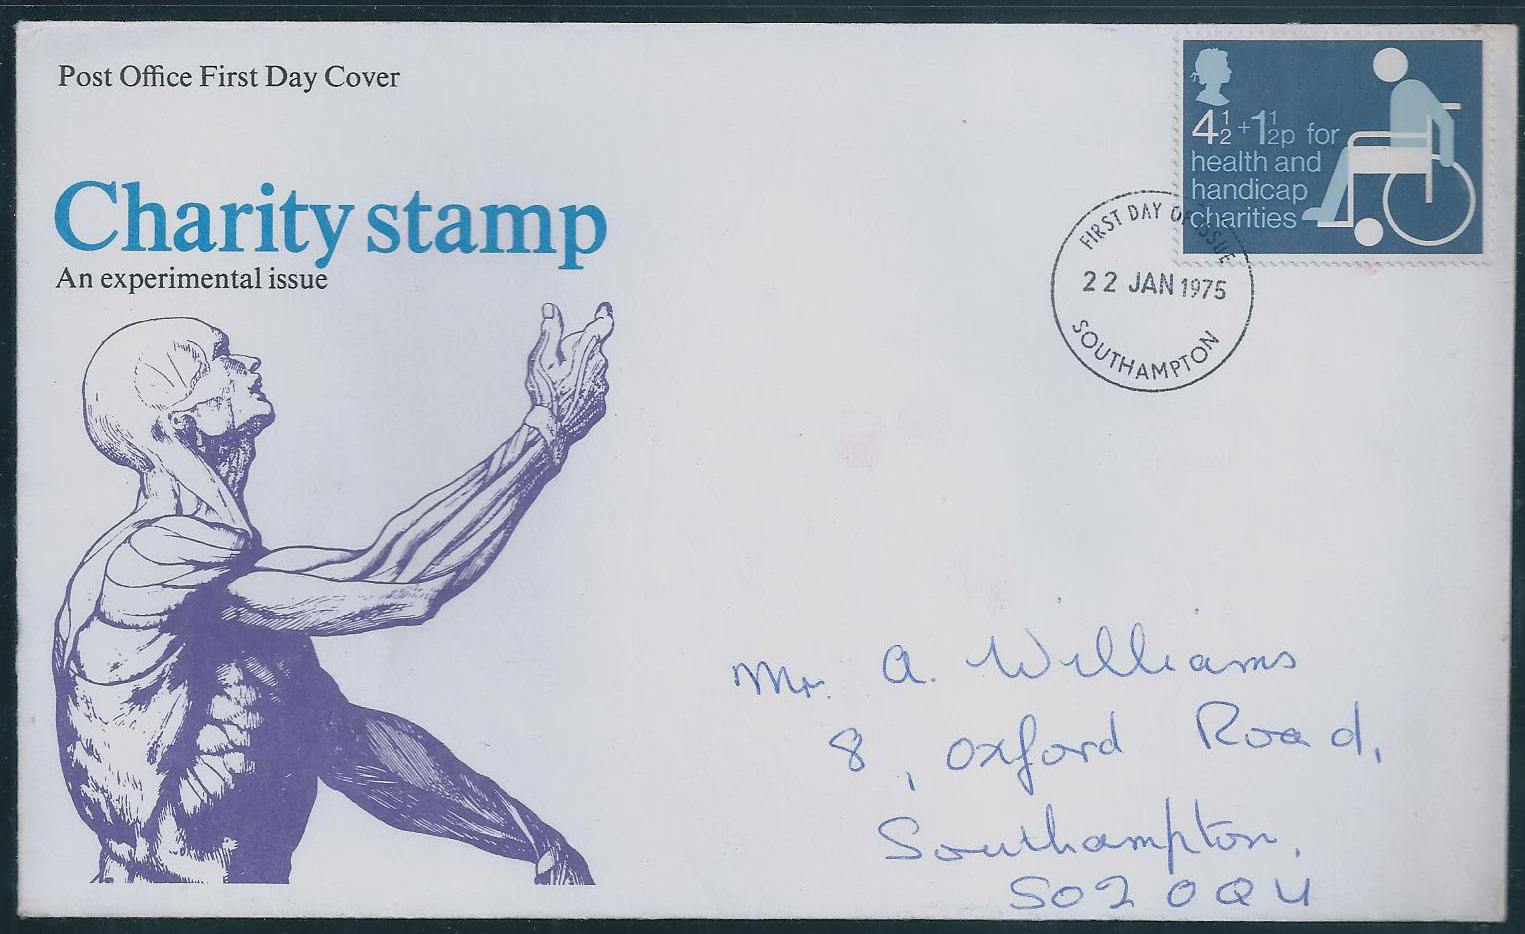 Post Office First Day Cover
Charity stamp
An experimental issue
4½+1½p for
health and
handicap
charities
FIRST DAY OF ISSUE
22 JAN 1975
SOUTHAMPTON
Mr. A. Williams
8, Oxford Road,
Southampton,
SO2 0QU